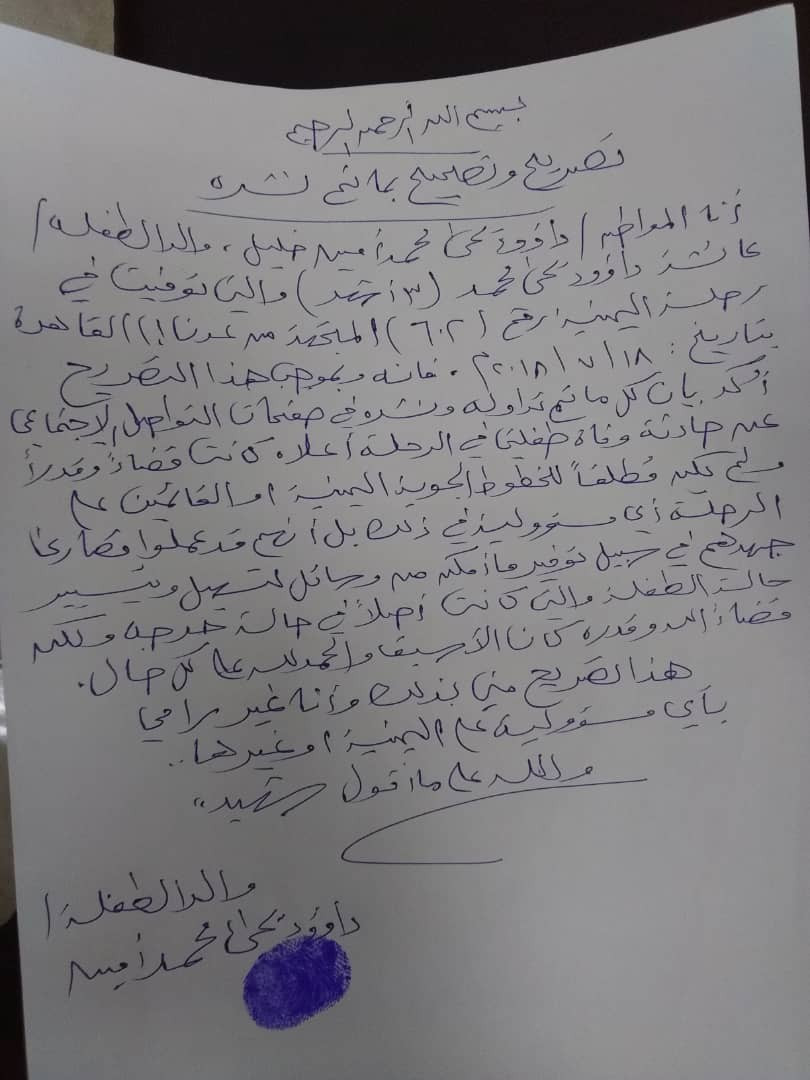 بسم الله الرحمن الرحيم
تصريح وتصحيح بما تم نشره
أنا المواطن / داؤود يحيى محمد أمين خليل، والد الطفلة /
عائشة داؤود يحيى محمد (٣ أشهر) والتي توفيت في
رحلة اليمنية رقم (٦٠٢) المتجهة من عدن إلى القاهرة
بتاريخ: ١٨ / ٧ / ٢٠١٨م، فانه وبموجب هذا التصريح
أؤكد بان كل ما تم تداوله ونشره في صفحات التواصل الإجتماعي
عن حادثة وفاة طفلتي في الرحلة أعلاه كانت قضاءً وقدراً
ولم يكن مُطلقاً للخطوط الجوية اليمنية او القائمين على
الرحلة أي مسؤولية في ذلك بل أنهم قد عملوا قصارى
جهدهم في سبيل توفير ما أمكن من وسائل لتسهيل وتيسير
حالة الطفلة والتي كانت أصلاً في حالة حرجه ولكن
قضاء الله وقدره كان الأسبق والحمدلله على كل حال.
هذا تصريح مني بذلك وأنا غير رامي
بأي مسؤولية على اليمنية او غيرها..
والله على ما أقول شهيد،،
والد الطفلة /
داؤود يحيى محمد أمين